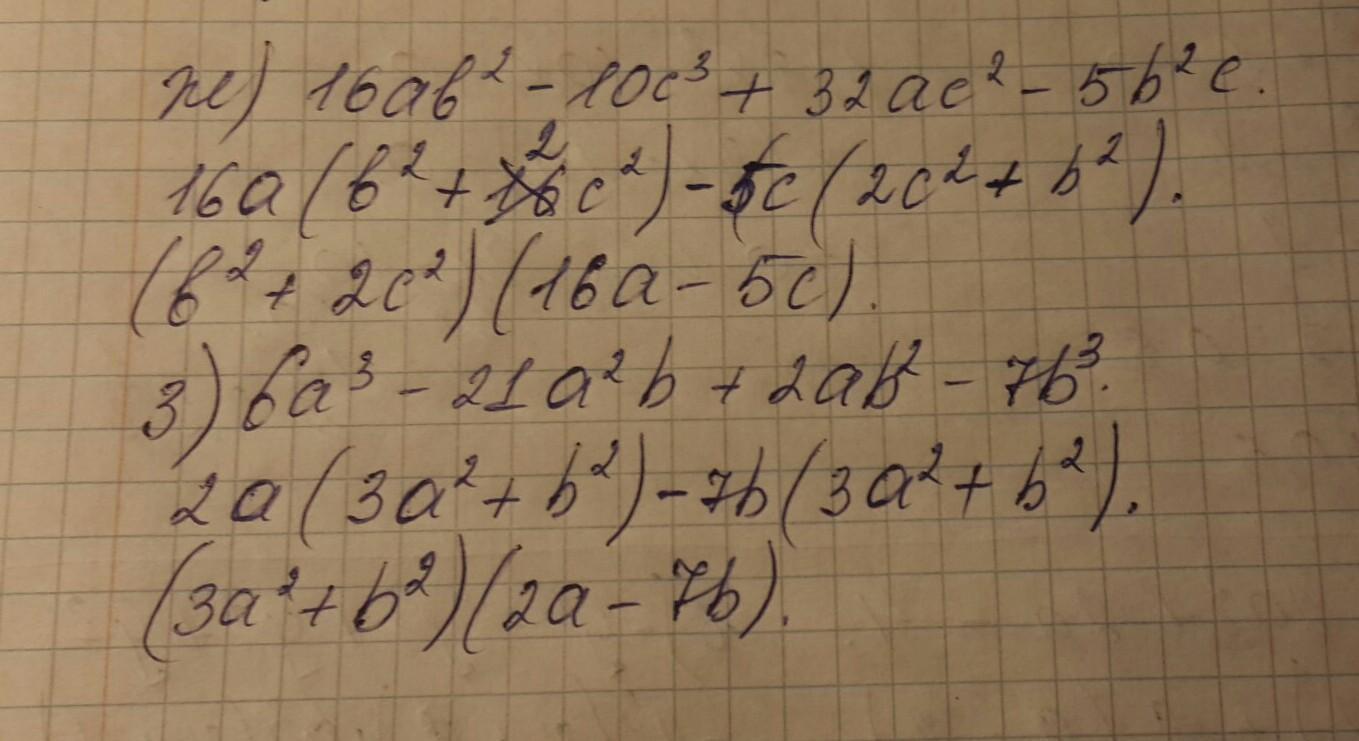 ж) 16ab² - 10c³ + 32ac² - 5b²c.
16a(b² + 2c²) - 5c(2c² + b²).
(b² + 2c²)(16a - 5c).
з) 6a³ - 21a²b + 2ab² - 7b³.
2a(3a² + b²) - 7b(3a² + b²).
(3a² + b²)(2a - 7b).